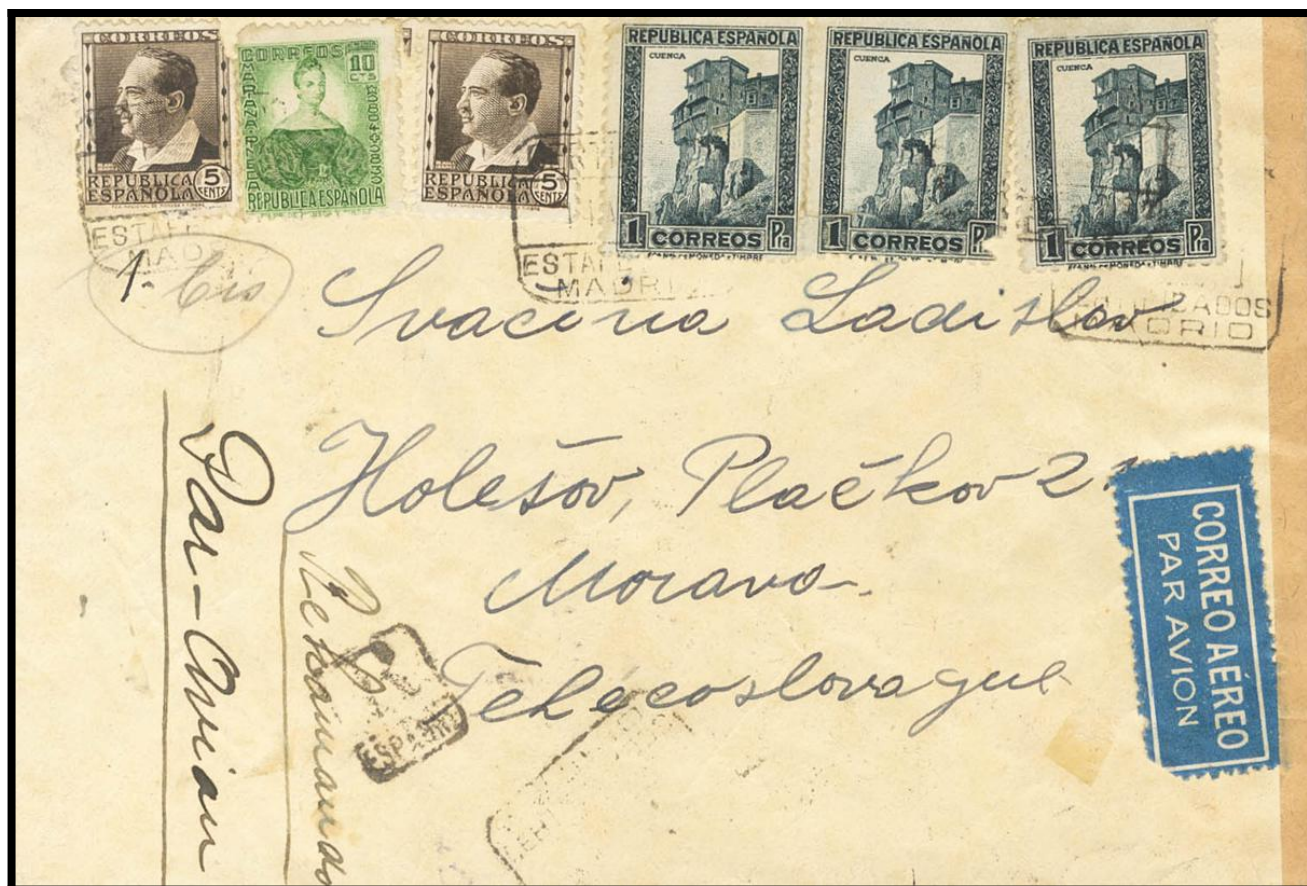 CORREOS
REPUBLICA
ESPAÑOLA
5
CENTS
CORREOS
10
CTS
MARIANA PINEDA
REPUBLICA ESPAÑOLA
CORREOS
REPUBLICA
ESPAÑOLA
5
CENTS
REPUBLICA ESPAÑOLA
CUENCA
1 CORREOS Pta
REPUBLICA ESPAÑOLA
CUENCA
1 CORREOS Pta
REPUBLICA ESPAÑOLA
CUENCA
1 CORREOS Pta
MADRID
1. bis
Svacina Ladislav
Holešov, Plačkov 21
Morava
Tchécoslovaque
Par-Avion
CORREO AÉREO
PAR AVION